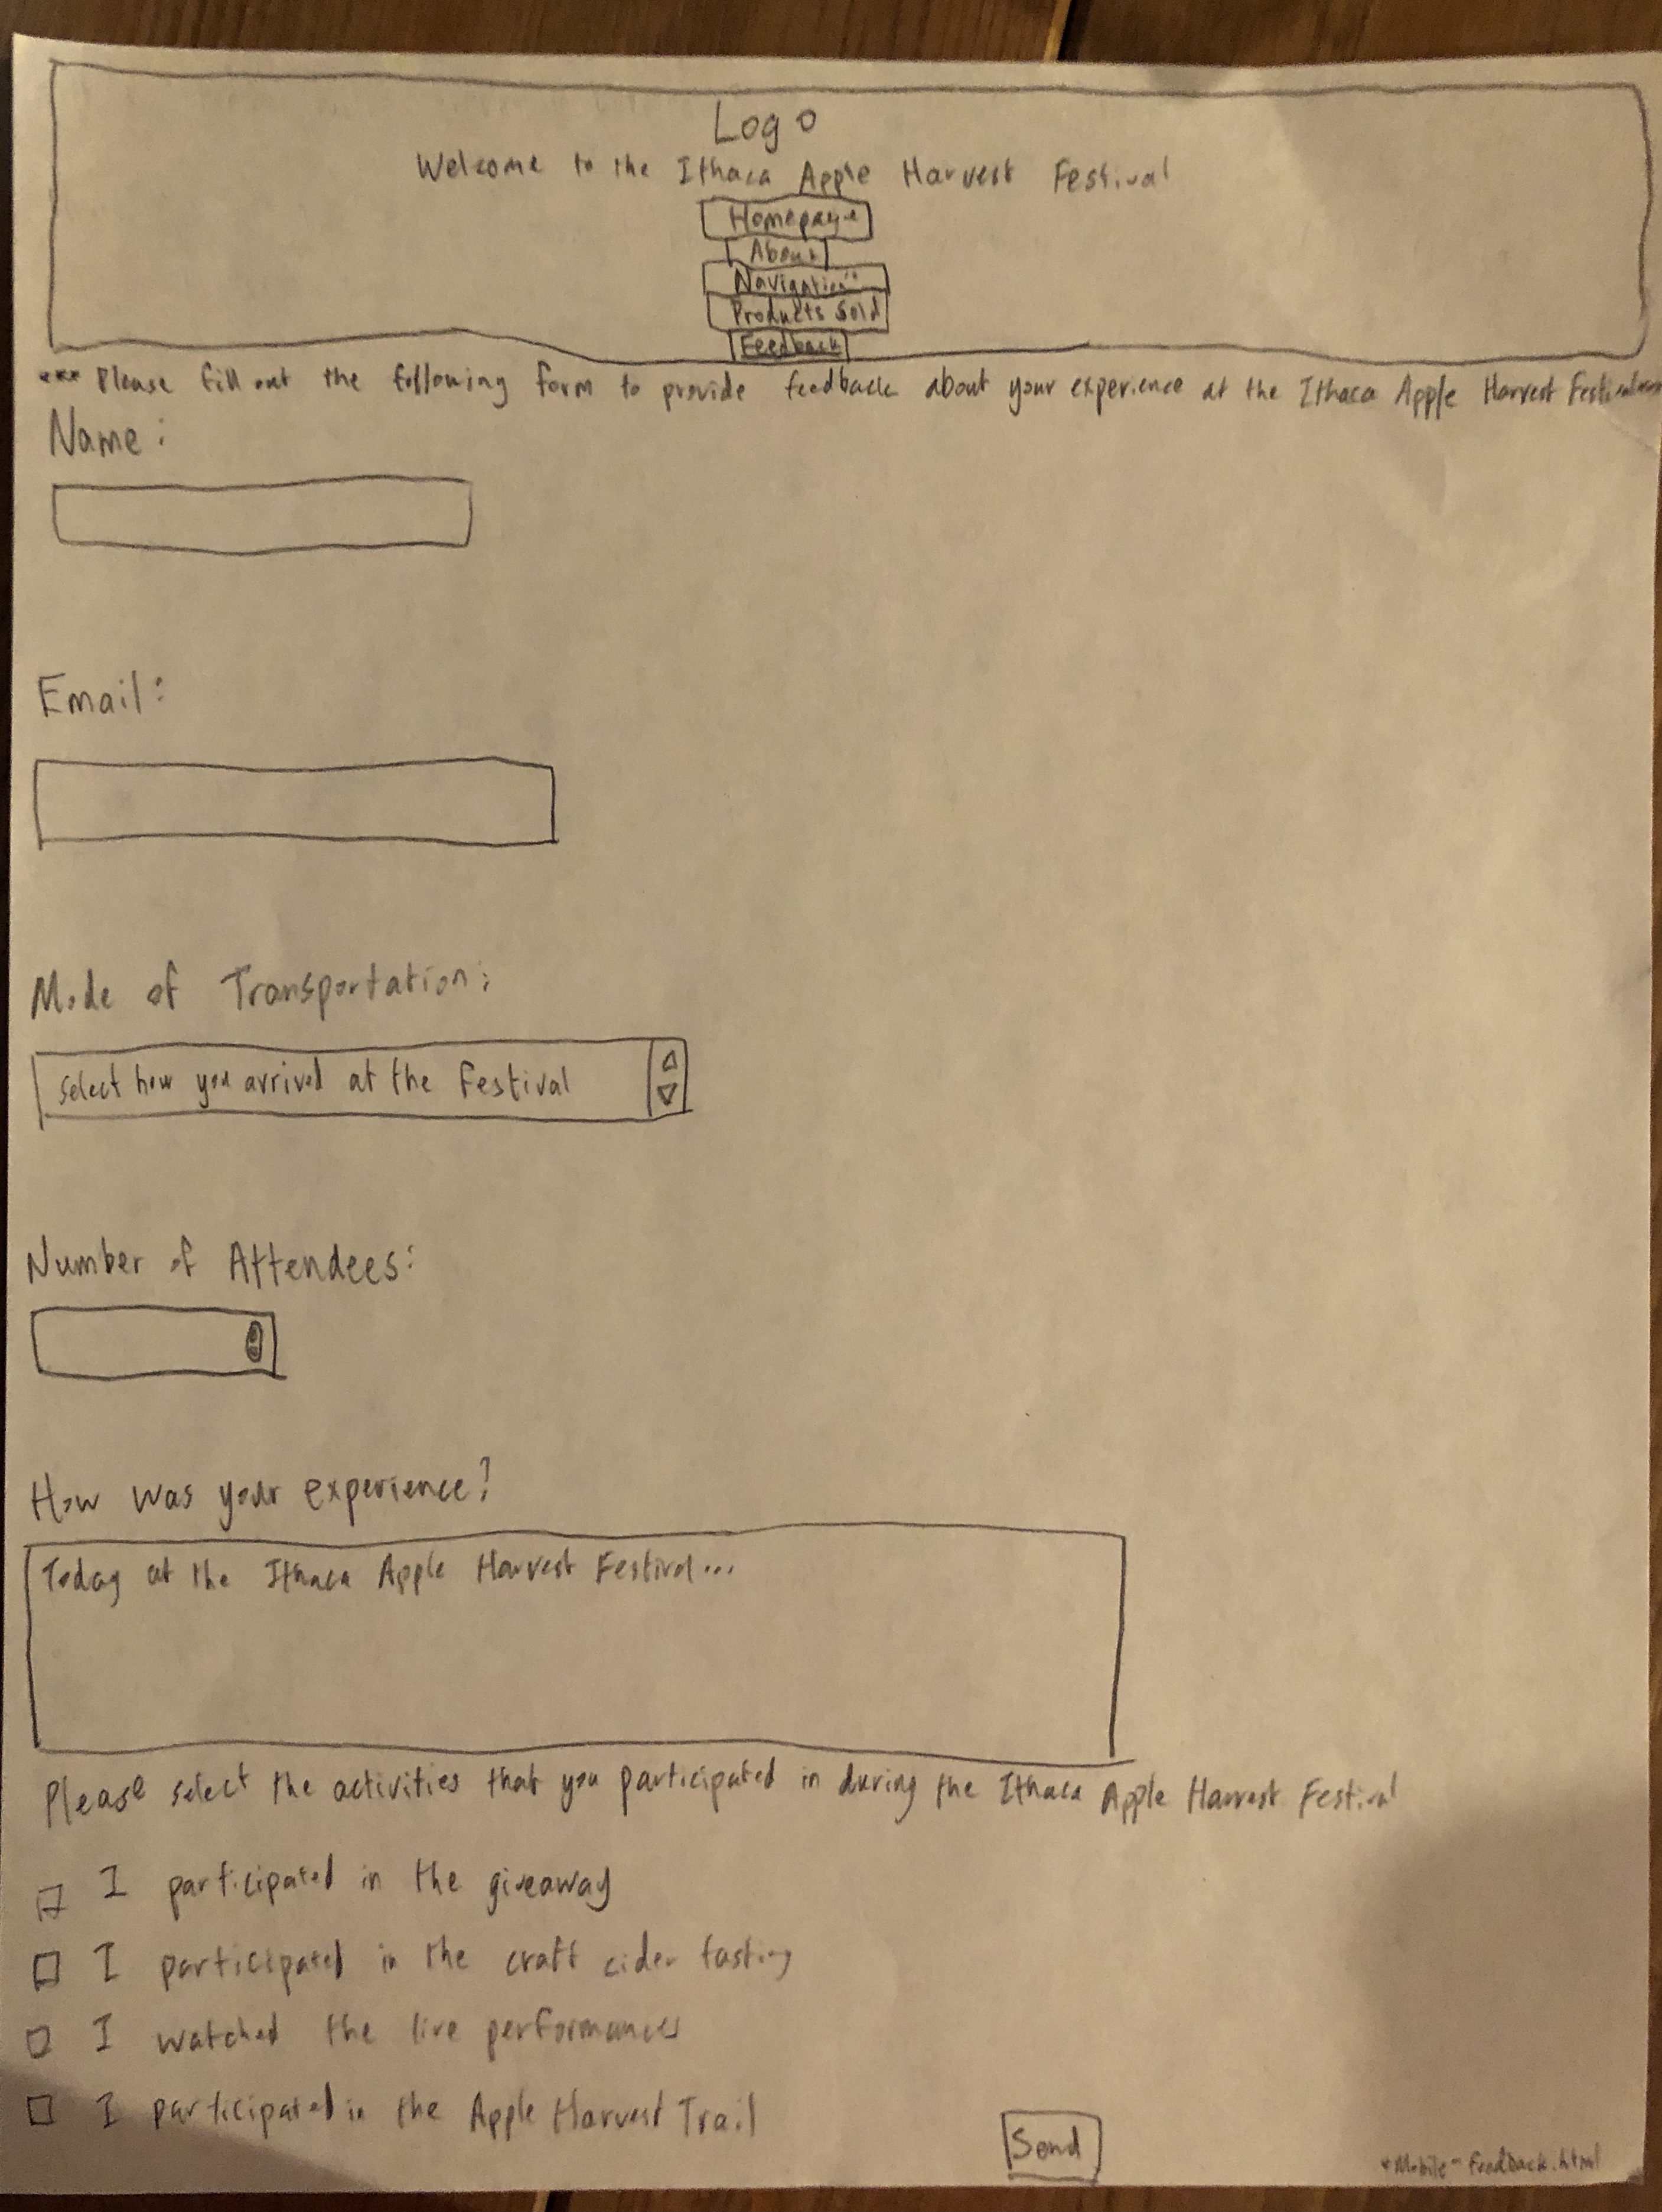 Logo
Welcome to the Ithaca Apple Harvest Festival
Homepage
About
Navigation
Products Sold
Feedback
*** Please fill out the following form to provide feedback about your experience at the Ithaca Apple Harvest Festival***
Name:
Email:
Mode of Transportation:
Select how you arrived at the Festival
Number of Attendees:
How was your experience?
Today at the Ithaca Apple Harvest Festival...
Please select the activities that you participated in during the Ithaca Apple Harvest Festival
I participated in the giveaway
I participated in the craft cider tasting
I watched the live performances
I participated in the Apple Harvest Trail
Send
*Mobile-feedback.html